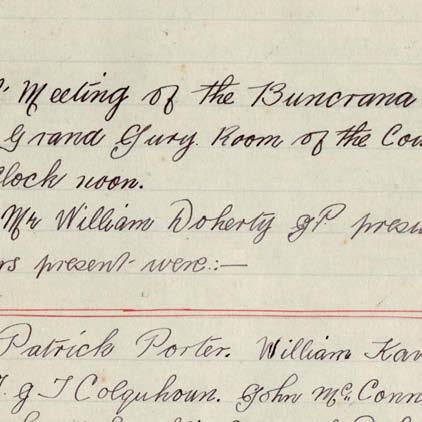 Meeting of the Buncrana
Grand Jury Room of the Cou
Clock noon.
Mr William Doherty J.P. presi
rs present were:—
Patrick Porter. William Kav
J. G. T Colquhoun. John McConn